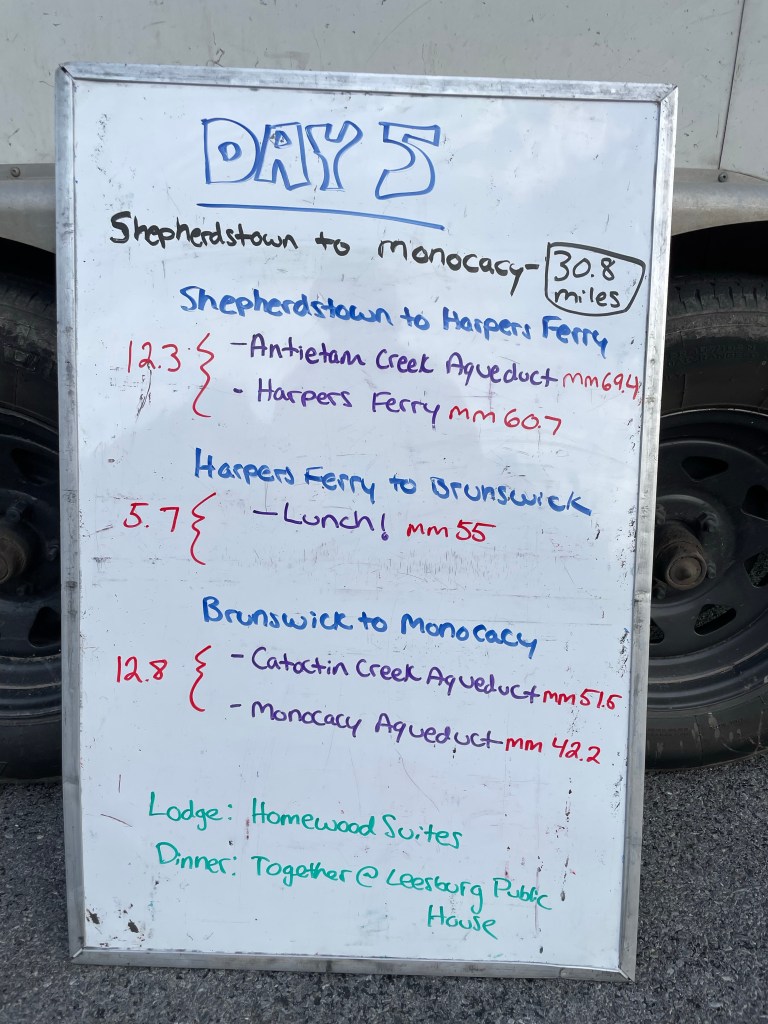 DAY 5
Shepherdstown to Monocacy- 30.8 miles
Shepherdstown to Harpers Ferry
12.3 { - Antietam Creek Aqueduct mm 69.4
- Harpers Ferry mm 60.7
Harpers Ferry to Brunswick
5.7 { - Lunch! mm 55
Brunswick to Monocacy
12.8 { - Catoctin Creek Aqueduct mm 51.5
- Monocacy Aqueduct mm 42.2
Lodge: Homewood Suites
Dinner: Together @ Leesburg Public
House